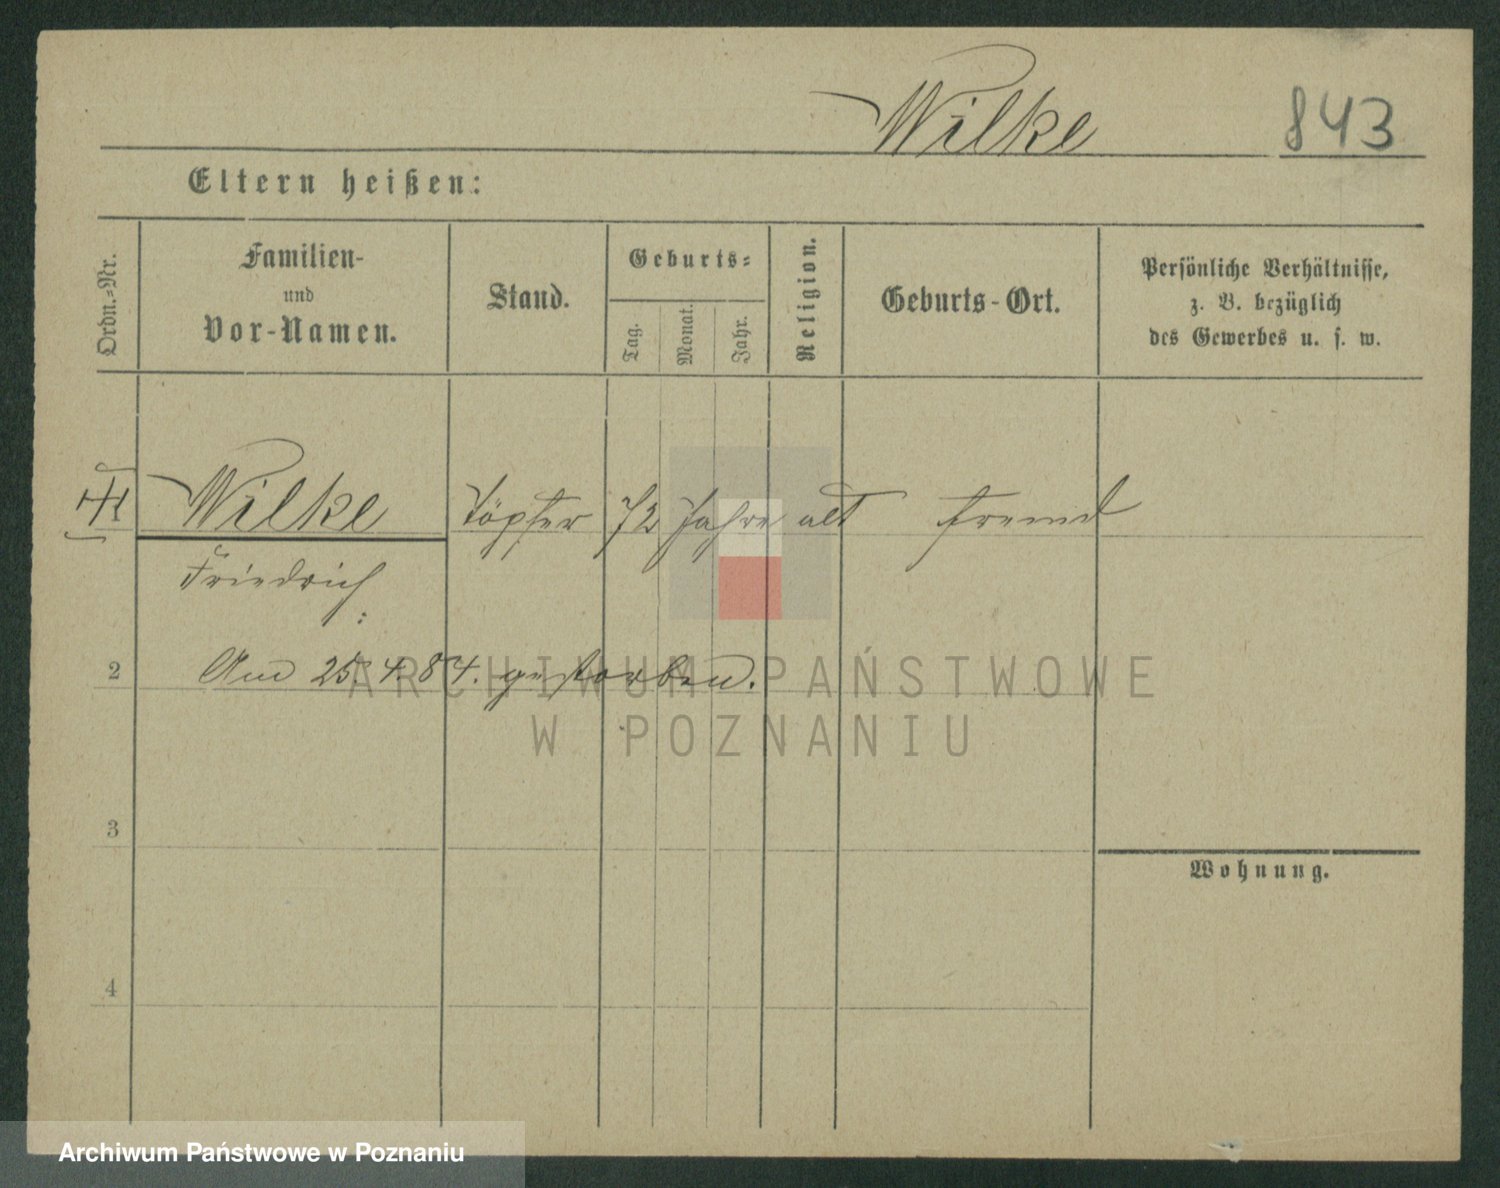 Wilke 843
Eltern heißen:
Ordn.-Nr.
Familien-
und
Vor-Namen.
Stand.
Geburts-
Tag.
Monat.
Jahr.
Religion.
Geburts-Ort.
Persönliche Verhältnisse,
z. B. bezüglich
des Gewerbes u. s. w.
Wilke Töpfer 72 Jahre alt fremd
Friedrich
2 Am 25.4.84. gestorben.
ARCHIWUM PAŃSTWOWE
W POZNANIU
3
Wohnung.
4
Archiwum Państwowe w Poznaniu